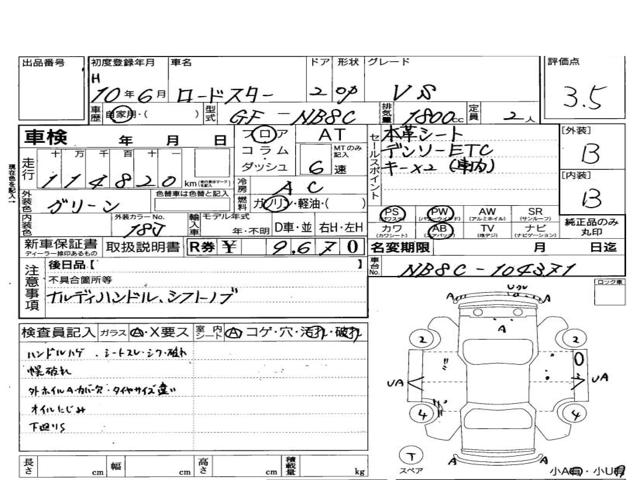 出品番号
初度登録年月 車名 ドア 形状 グレード 評価点
H 10年6月 ロードスター 2 OP VS 3.5
車歴 自家用・( ) 型式 GF-NB8C 排気量 1800cc 定員 2人
車検 年 月 日
フロア AT
コラム MTのみ記入
ダッシュ 6速
セールスポイント
本革シート
デンソーETC
キー×2(車内)
[外装]
B
[内装]
B
現在色を記入
走行 十万 万 千 百 十 一
114820 km
冷房 AC
外装色 グリーン 色替車は色替と記入
燃料 ガソリン・軽油・( )
内装色 外装カラーNo. 18J 輸入車 モデル年式 年・不明 D車・並 右H・左H
PS PW AW SR
カワ AB TV ナビ
純正品のみ丸印
新車保証書 取扱説明書 R券 ¥ 9,670
ディーラー捺印あるもの
名変期限 月 日迄
車台No. NB8C-104371
注意事項
後日品[ ]
不具合箇所等
ナルディハンドル、シフトノブ
ロック車
検査員記入 ガラス A・X要ス 室内シート A コゲ・穴・汚れ・破れ
ハンドルハゲ、シートスレ・シワ・破れ
幌破れ
外ホイルA・カバー欠・タイヤサイズ違い
オイルにじみ
下回りS
長さ cm 幅 cm 高さ cm 積載量 kg
A
A A
2 2
UA UA
4 4
T
スペア
A A
小A・小U